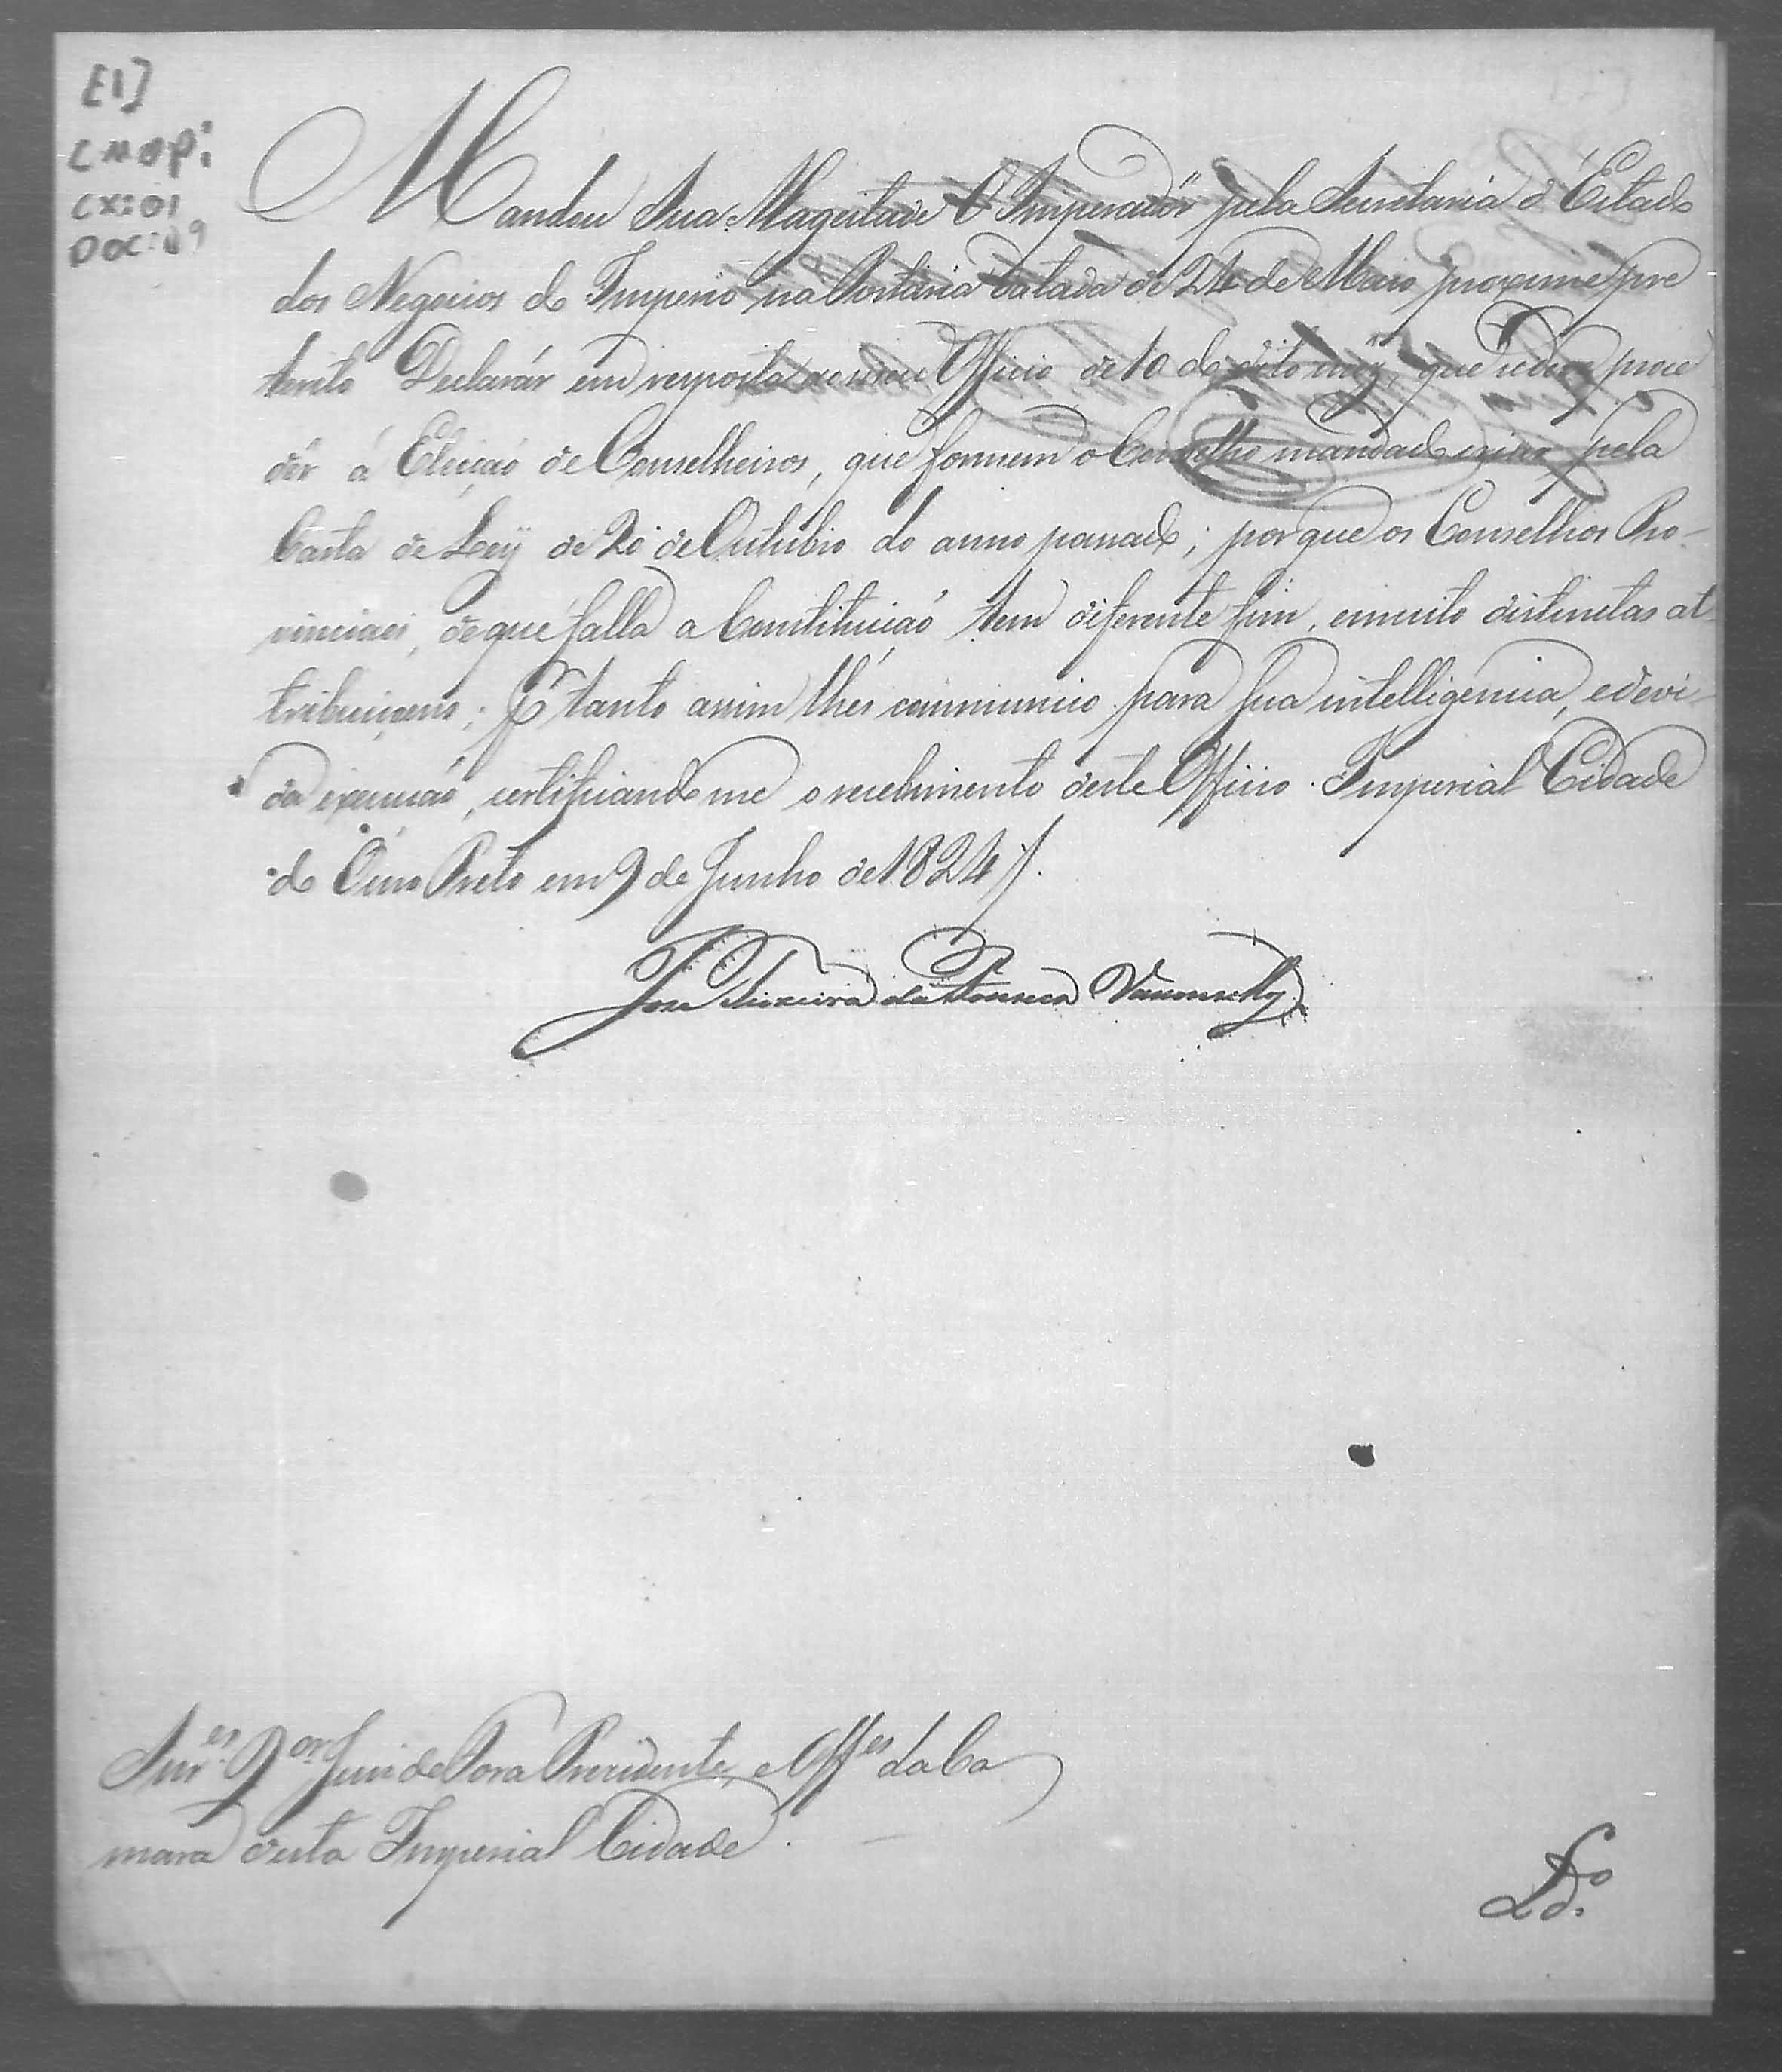 [1]
CMOP:
CX:01
DOC:09
Mandou Sua Magestade O Imperador pela Secretaria d'Estado
dos Negocios do Imperio na Portaria datada de 24 de Maio proximo pre
terito Declarár em resposta ao meu Officio de 10 do dito mez, que se deve proce
dêr á Eleiçaõ de Conselheiros, que formem o Conselho mandado criar pela
Carta de Ley de 20 de Outubro do anno passado; porque os Conselhos Pro-
vinciaes, de que falla a Constituiçaõ tem diferente fim, e muito distinctas at-
tribuiçoens; P tanto assim lhes communico para sua intelligencia, e devi-
da execuçaõ, certificando me o recebimento deste Officio. Imperial Cidade
do Ouro Preto em 9 de Junho de 1824 //.
Jose Teixeira da Fonseca Vasconcellos
Snr.es D.or Juis de Fora Presidente, e Off.es da Ca
mara desta Imperial Cidade.